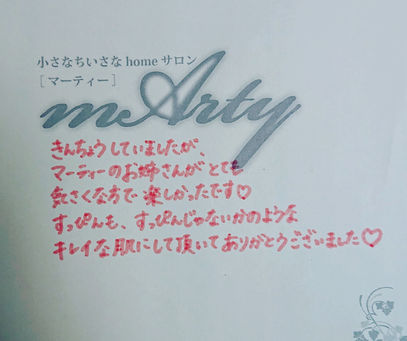 小さなちいさなhomeサロン
[マーティー]
mArty
きんちょうしていましたが、
マーティーのお姉さんがとても
気さくな方で楽しかったです♡
すっぴんも、すっぴんじゃないかのような
キレイな肌にして頂いてありがとうございました♡